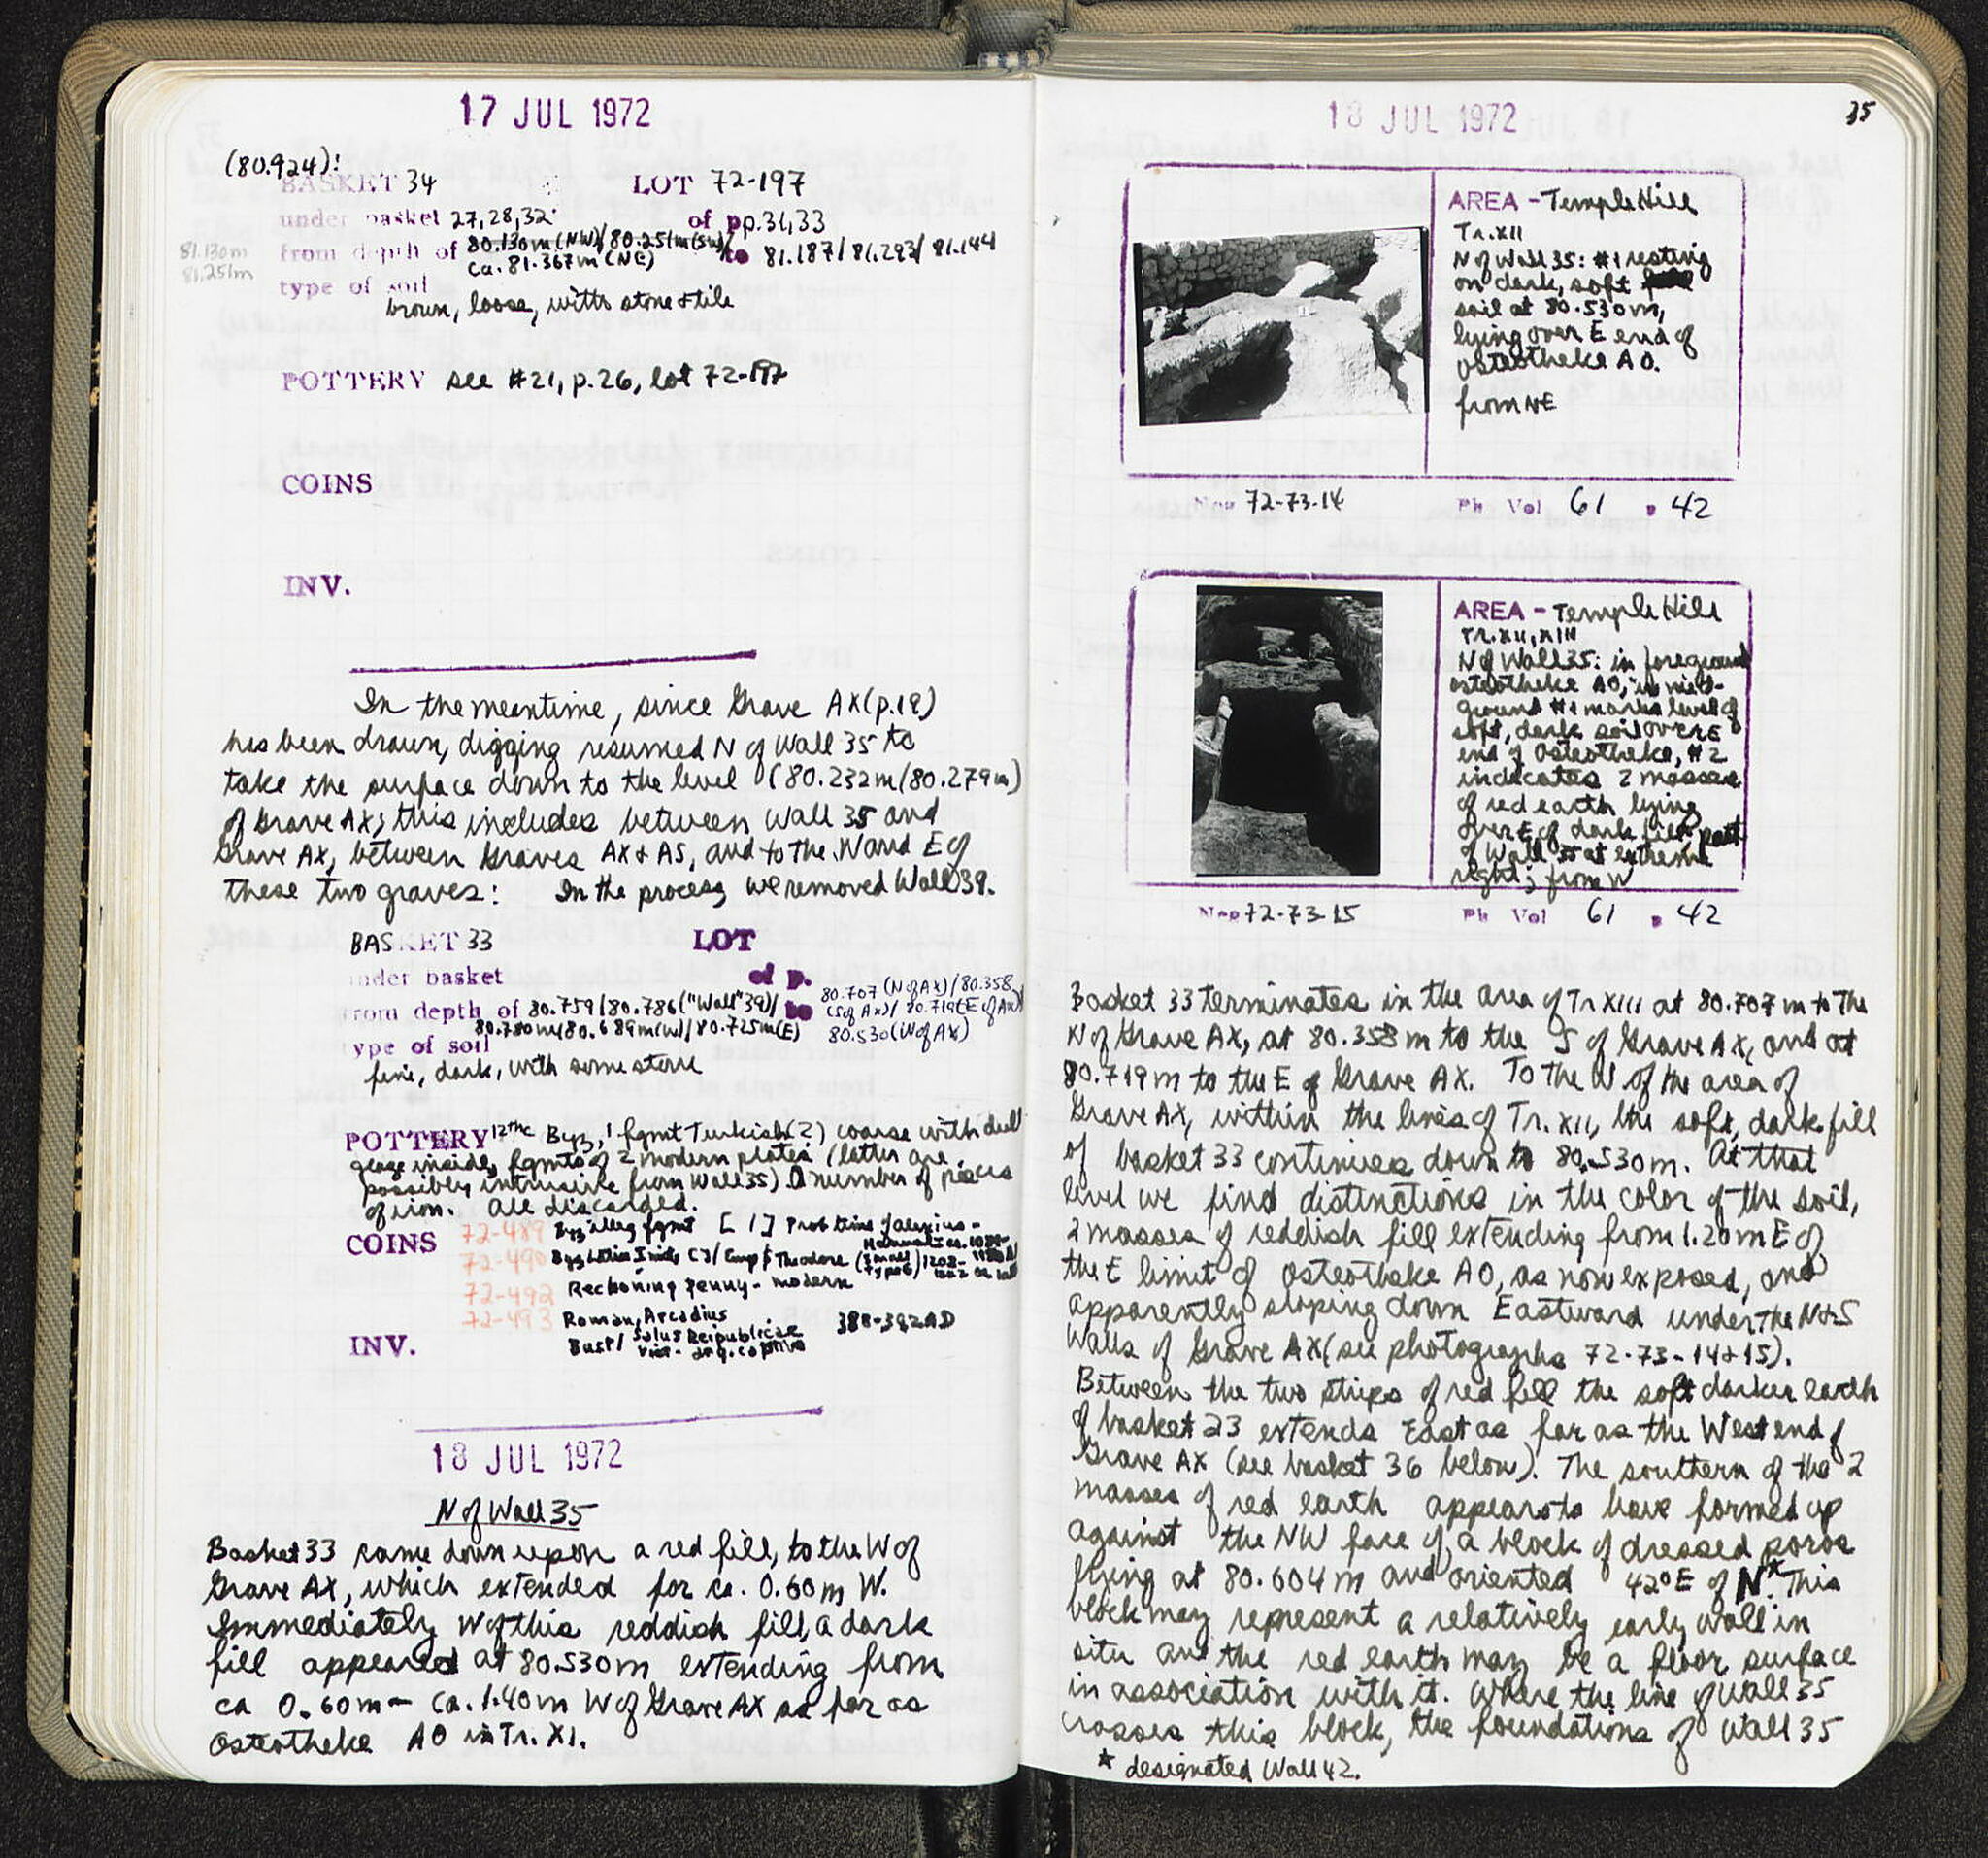 17 JUL 1972
(80.924):
BASKET 34 LOT 72-197
under basket 27,28,32 of pp.31,33
81.130m
81.251m
from depth of 80.130m(NW)/80.251m(SW)/ to 81.187/81.293/81.144
ca. 81.367m(NE)
type of soil
brown, loose, with stone & tile
POTTERY see #21, p.26, lot 72-197
COINS
INV.
In the meantime, since Grave AX (p.19)
has been drawn, digging resumed N of Wall 35 to
take the surface down to the level (80.232m/80.279m)
of Grave AX; this includes between Wall 35 and
Grave AX, between Graves AX & AS, and to the N and E of
these two graves: In the process, we removed Wall 39.
BASKET 33 LOT
under basket of p.
from depth of 80.759/80.786("Wall"39)/ to 80.707 (N of AX)/80.358
80.780m/80.689m(W)/80.725m(E) (S of AX)/ 80.719(E of AX)
80.530(W of AX)
type of soil
fine, dark, with some stone
POTTERY 12thc Byz, 1 fgmt Turkish(?) coarse with dull
glaze inside, fgmts of 2 modern plates (latter are
possibly intrusive from Wall 35) A number of pieces
of iron. All discarded.
COINS 72-489 Byz illeg fgmt [ / ] Prob time of Alexius-
72-490 Byz Latin Imit. Emp & Theodore (small
72-492 Reckoning penny - modern
72-493 Roman, Arcadius 388-392 AD
INV. Bust/ Salus Reipublicae
Vict. drg. captive
18 JUL 1972
N of Wall 35
Basket 33 came down upon a red fill, to the W of
Grave AX, which extended for ca. 0.60m W.
Immediately W of this reddish fill, a dark
fill appeared at 80.530m extending from
ca 0.60m - ca. 1.40m W of Grave AX as far as
Osteotheke AO in Tr. XI.
18 JUL 1972
35
AREA - Temple Hill
Tr.XII
N of Wall 35: #1 resting
on dark, soft
soil at 80.530m,
lying over E end of
osteotheke AO.
from NE
Neg 72-73-14 Ph Vol 61 p 42
AREA - Temple Hill
Tr. XII, XIII
N of Wall 35: in foreground
osteotheke AO, in mid-
ground #1 marks level of
soft, dark soil over E
end of Osteotheke, #2
indicates 2 masses
of red earth lying
over E of dark fill; part
of Wall 35 at extreme
right; from W
Neg 72-73-15 Ph Vol 61 p 42
Basket 33 terminates in the area of Tr XIII at 80.707m to the
N of Grave AX, at 80.358m to the S of Grave AX, and at
80.719m to the E of Grave AX. To the W of the area of
Grave AX, within the lines of Tr. XII, the soft, dark fill
of basket 33 continues down to 80.530m. At that
level we find distinctions in the color of the soil,
2 masses of reddish fill extending from 1.20m E of
the E limit of Osteotheke AO, as now exposed, and
apparently sloping down Eastward under the N & S
walls of Grave AX (see photographs 72-73-14 & 15).
Between the two strips of red fill the soft darker earth
of basket 23 extends East as far as the West end of
Grave AX (see basket 36 below). The southern of the 2
masses of red earth appears to have formed up
against the NW face of a block of dressed poros
lying at 80.604m and oriented 42°E of N.* This
block may represent a relatively early wall in
situ and the red earth may be a floor surface
in association with it. Where the line of Wall 35
crosses this block, the foundations of Wall 35
* designated Wall 42.